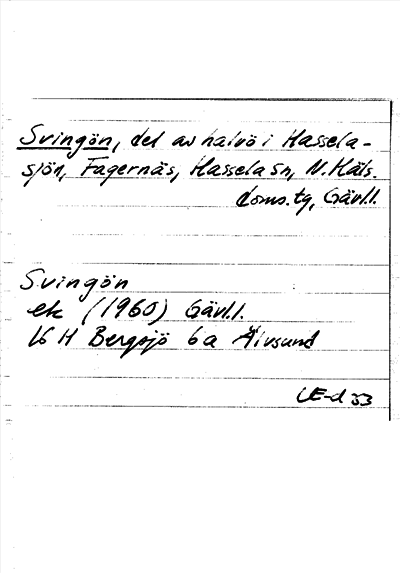 Svingön, del av halvö i Hassela-
sjön, Fagernäs, Hassela sn, N. Häls.
doms. tg, Gävl.l.
Svingön
ek (1960) Gävl.l.
16 H Bergsjö 6a Älvsund
UE-d 53